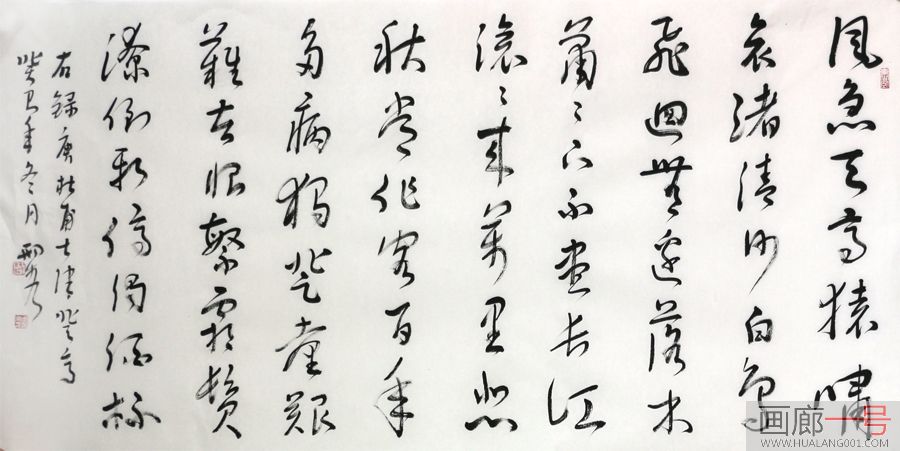 風急天高猿嘯
哀渚清沙白鳥
飛迴無邊落木
蕭〻下不盡長江
滾〻来萬里悲
秋常作客百年
多病獨登臺艱
難苦恨繁霜鬢
潦倒新停濁酒杯
右録唐杜甫七律登高
癸卯年冬月
画廊一号
WWW.HUALANG001.COM